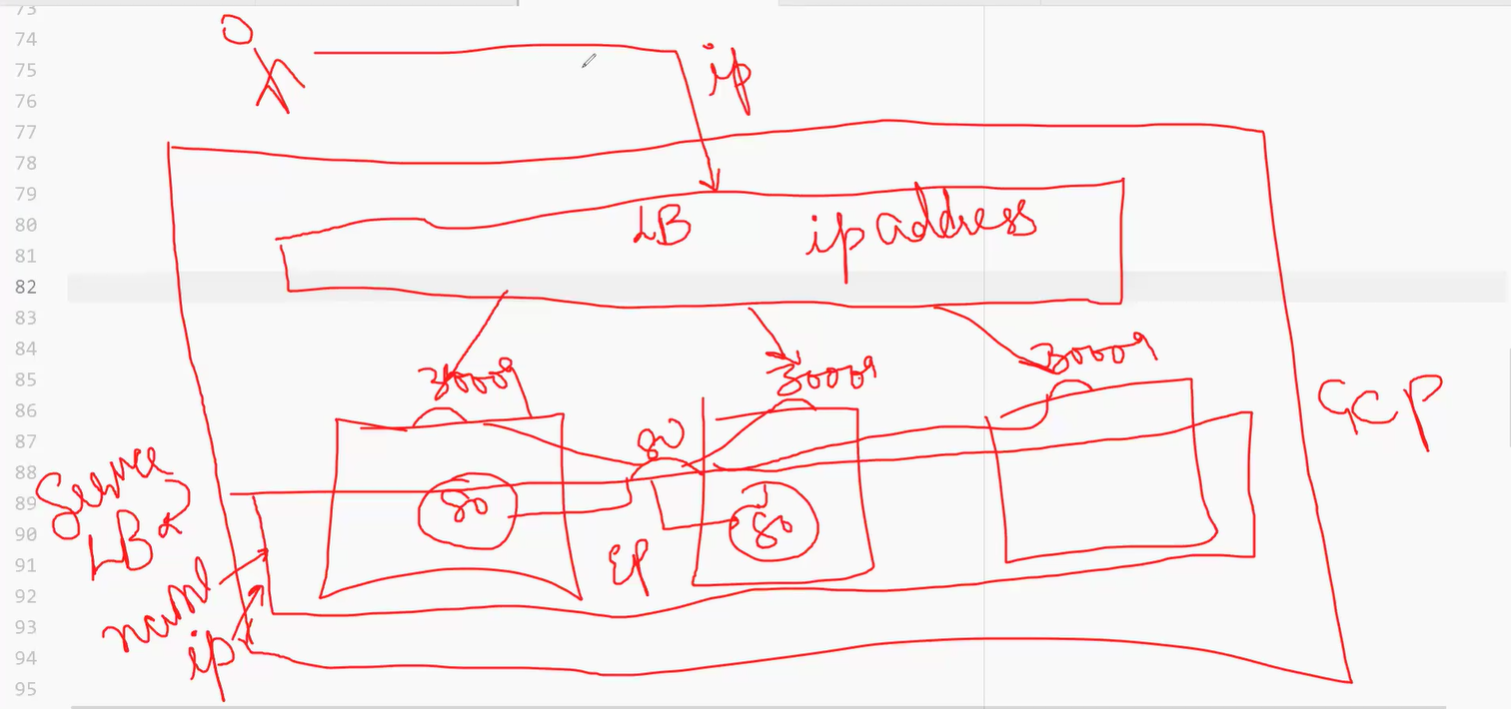 73
74
75
76
77
78
79
80
81
82
83
84
85
86
87
88
89
90
91
92
93
94
95
ip
LB ip address
30009 30009 30009
GCP
80
Service
LB
80 80
EP
name
ip